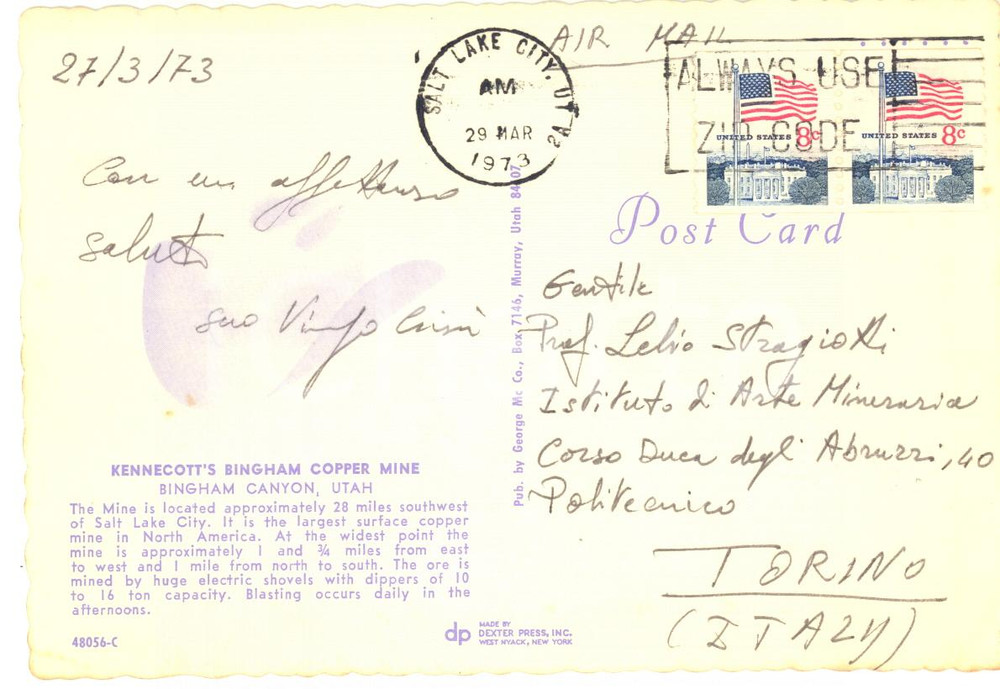 27/3/73
AIR MAIL
SALT LAKE CITY, UT
AM
29 MAR
1973
2A
ALWAYS USE
ZIP CODE
UNITED STATES 8c
UNITED STATES 8c
Con un affettuoso
saluto
suo
Post Card
Gentile
Prof. Lelio Stragiotti
Istituto di Arte Mineraria
Corso Duca degli Abruzzi, 40
Politecnico
TORINO
(ITALY)
Pub. by George Mc Co., Box 7146, Murray, Utah 84107
KENNECOTT'S BINGHAM COPPER MINE
BINGHAM CANYON, UTAH
The Mine is located approximately 28 miles southwest
of Salt Lake City. It is the largest surface copper
mine in North America. At the widest point the
mine is approximately 1 and ¾ miles from east
to west and 1 mile from north to south. The ore is
mined by huge electric shovels with dippers of 10
to 16 ton capacity. Blasting occurs daily in the
afternoons.
48056-C
dp MADE BY
DEXTER PRESS, INC.
WEST NYACK, NEW YORK